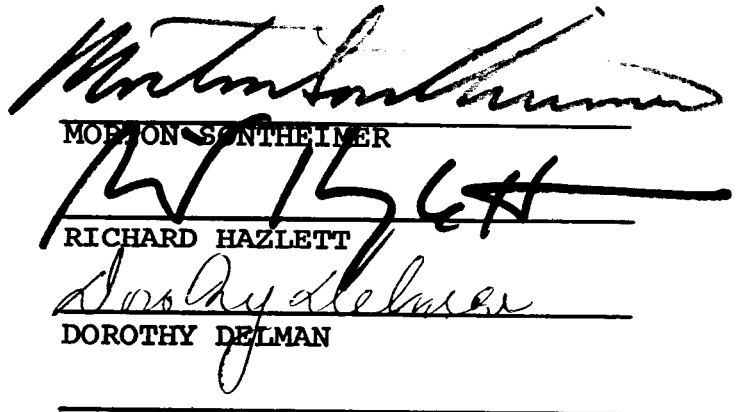 Morton Sontheimer
MORTON SONTHEIMER
RICHARD HAZLETT
Dorothy Delman
DOROTHY DELMAN